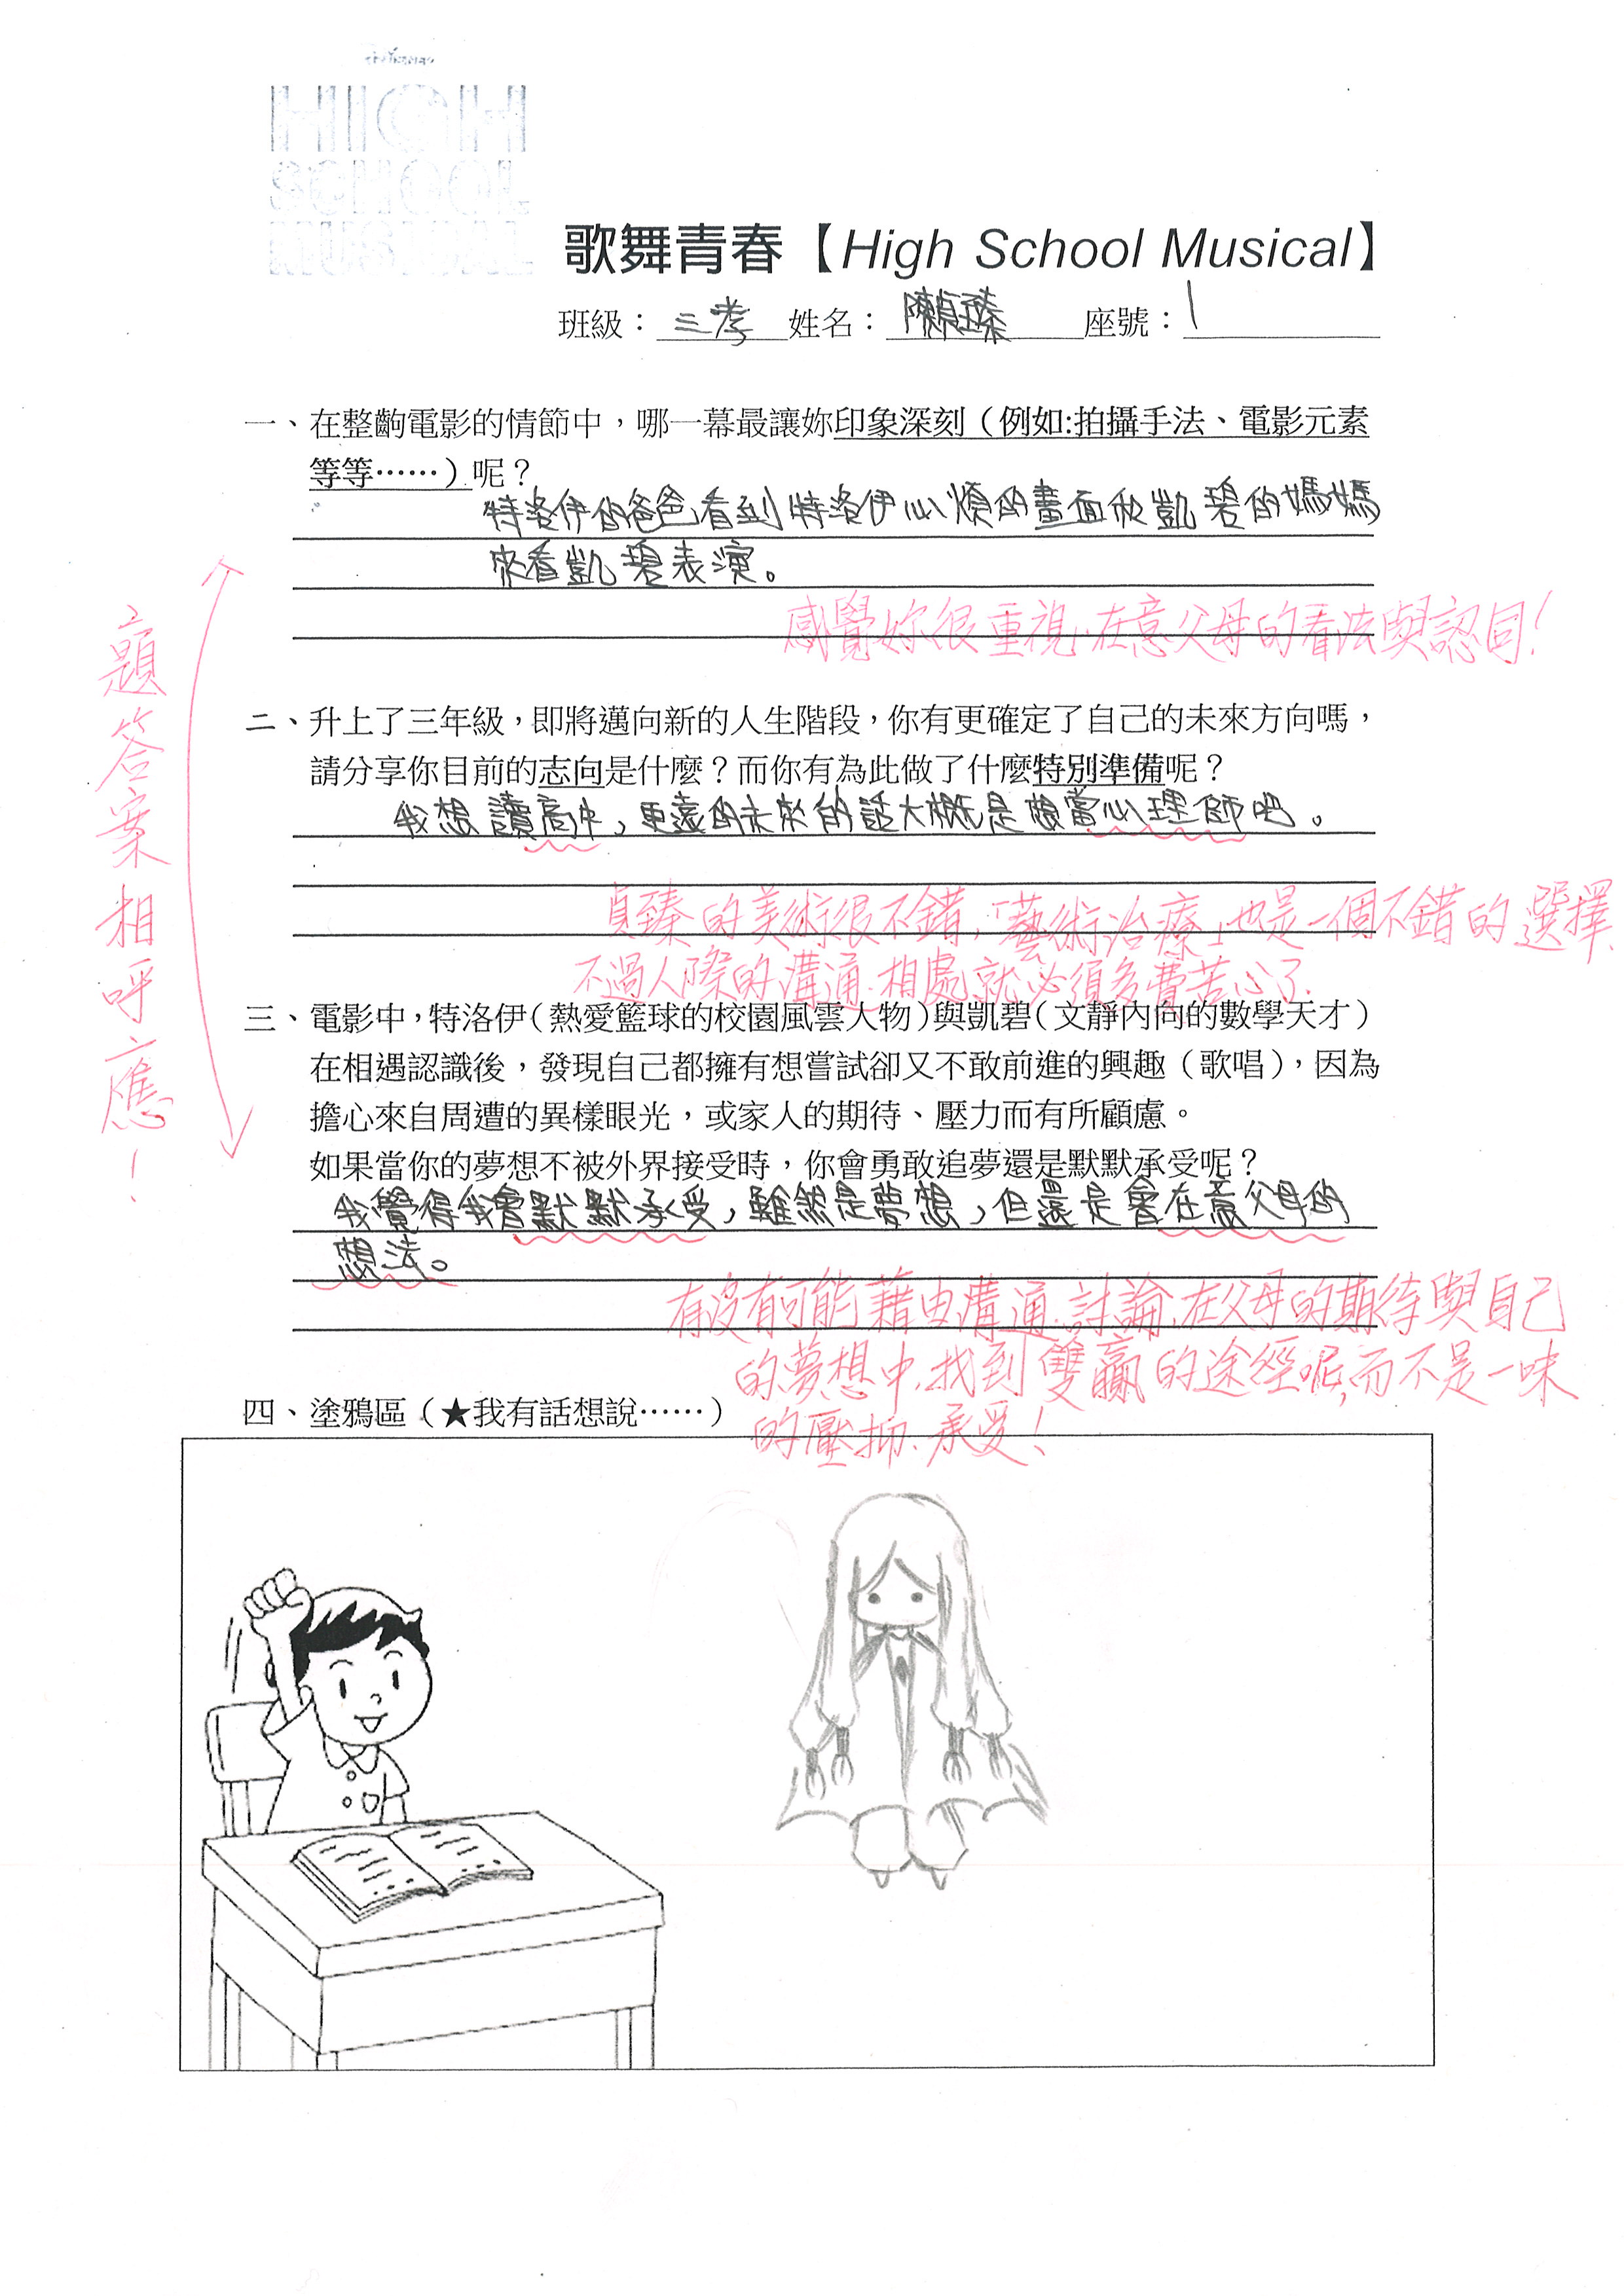 HIGH
SCHOOL
MUSICAL
歌舞青春【High School Musical】
班級：三孝 姓名：陳貞臻 座號：1
一、在整齣電影的情節中，哪一幕最讓妳印象深刻（例如:拍攝手法、電影元素
等等……）呢？
特洛伊的爸爸看到特洛伊心煩的畫面和凱碧的媽媽
來看凱碧表演。
感覺妳很重視、在意父母的看法與認同！
二、升上了三年級，即將邁向新的人生階段，你有更確定了自己的未來方向嗎，
請分享你目前的志向是什麼？而你有為此做了什麼特別準備呢？
我想讀高中，更遠的未來的話大概是想當心理師吧。
貞臻的美術很不錯，「藝術治療」也是一個不錯的選擇、
不過人際的溝通、相處就必須多費苦心了、
三、電影中，特洛伊（熱愛籃球的校園風雲人物）與凱碧（文靜內向的數學天才）
在相遇認識後，發現自己都擁有想嘗試卻又不敢前進的興趣（歌唱），因為
擔心來自周遭的異樣眼光，或家人的期待、壓力而有所顧慮。
如果當你的夢想不被外界接受時，你會勇敢追夢還是默默承受呢？
我覺得我會默默承受，雖然是夢想，但還是會在意父母的
想法。
有沒有可能藉由溝通、討論、在父母的期待與自己
的夢想中、找到雙贏的途徑呢，而不是一味
的壓抑、承受！
題答案相呼應！
四、塗鴉區（★我有話想說……）